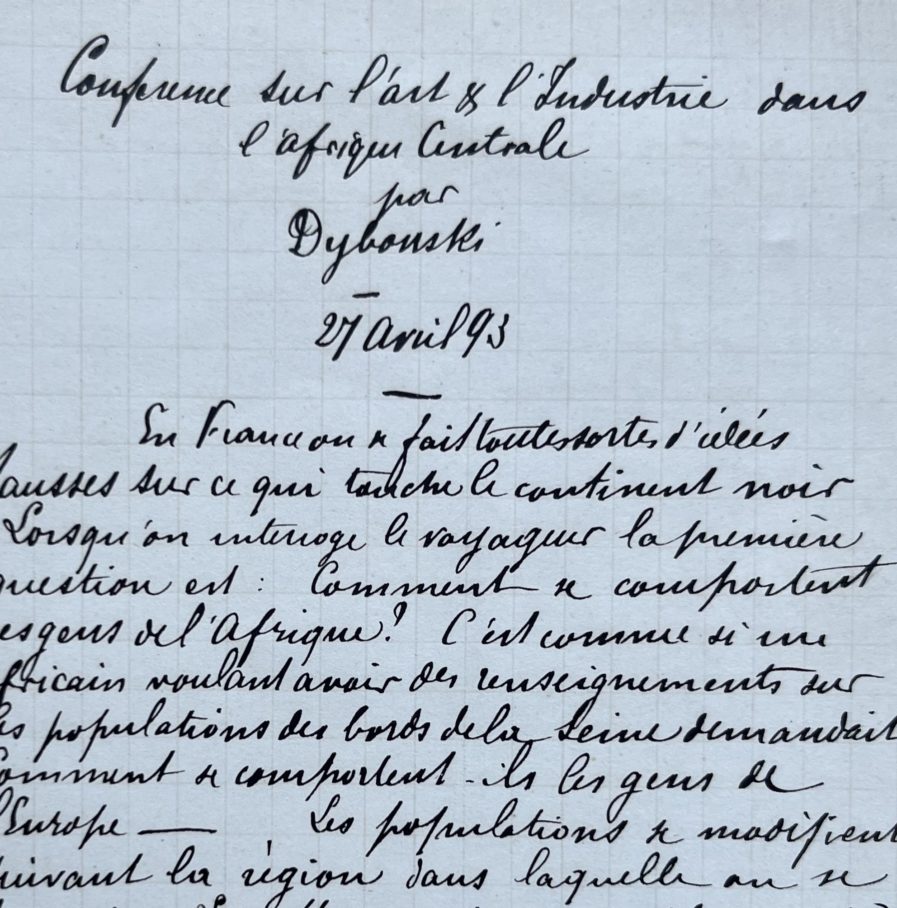 Conference sur l'art & l'Industrie dans
l'afrique Centrale
par
Dybouski
27 Avril 93
En France on se fait toutes sortes d'idées
fausses sur ce qui touche le continent noir
Lorsqu'on interroge le voyageur la première
question est : Comment se comportent
les gens de l'Afrique? C'est comme si un
africain voulant avoir des renseignements sur
les populations des bords de la Seine demandait
Comment se comportent-ils les gens de
l'Europe — Les populations se modifient
suivant la région dans laquelle on se